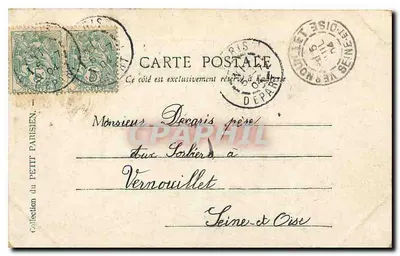 CARTE POSTALE
Ce côté est exclusivement réservé à l'adresse
PARIS
DÉPART
VERNOUILLET SEINE-ET-OISE
Monsieur Decaris père
aux Sorbiers à
Vernouillet
Seine et Oise
Collection du PETIT PARISIEN.